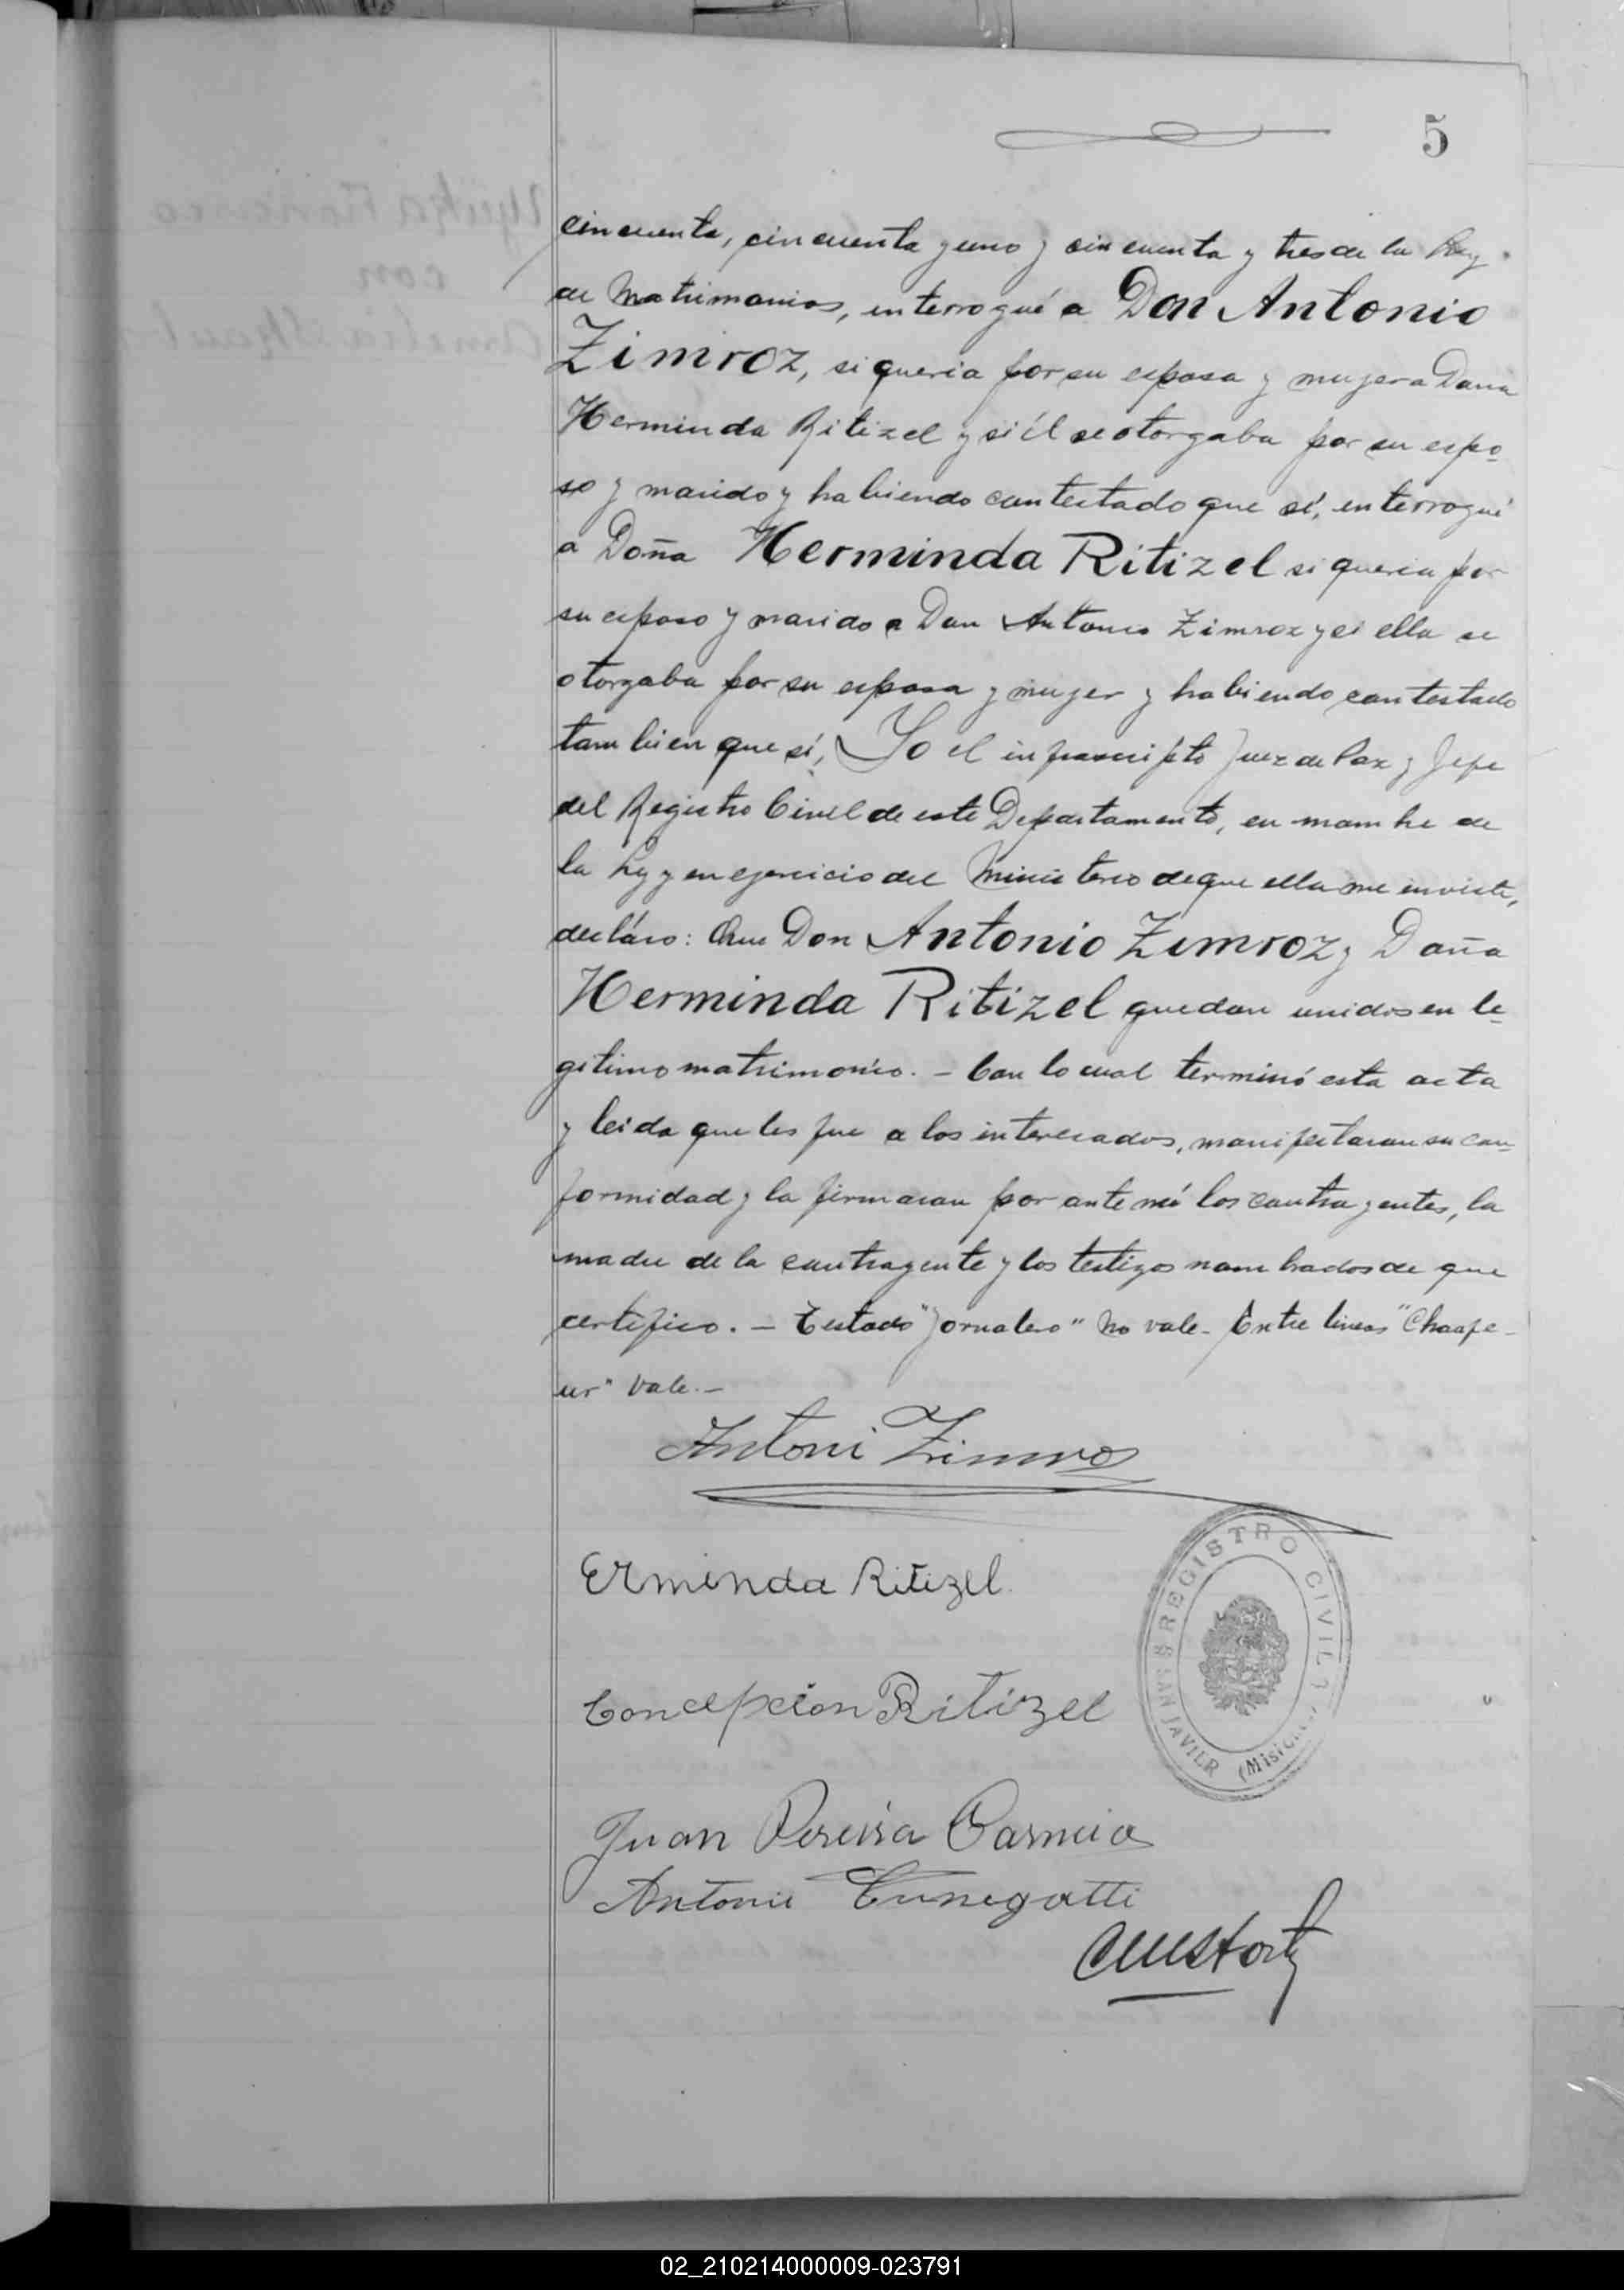 5
cincuenta, cincuenta y uno y cincuenta y tres de la Ley
de Matrimonios, interrogué a Don Antonio
Zimroz, si queria por su esposa y mujer a Doña
Herminda Ritizel y si él se otorgaba por su espo-
so y marido y habiendo contestado que sí, interrogué
a Doña Herminda Ritizel si queria por
su esposo y marido a Don Antonio Zimroz y si ella se
otorgaba por su esposa y mujer y habiendo contestado
tambien que sí, Yo el infrascripto Juez de Paz y Jefe
del Registro Civil de este Departamento, en nombre de
la Ley y en ejercicio del Ministerio de que ella me inviste,
decláro: Que Don Antonio Zimroz y Doña
Herminda Ritizel quedan unidos en le-
gitimo matrimonio. — Con lo cual terminó esta acta
y leida que les fue a los interesados, manifestaron su con-
formidad y la firmaron por ante mí los contrayentes, la
madre de la contrayente y los testigos nombrados de que
certifico. — Testado "Jornalero" No vale - Entre lineas "Chaufe-
ur" Vale. —
Antoni Zimros
Erminda Ritizel.
Concepcion Ritizel
Juan Pereira Carneio
Antonio Cunegatti
REGISTRO CIVIL
SAN JAVIER (Misiones
02_210214000009-023791